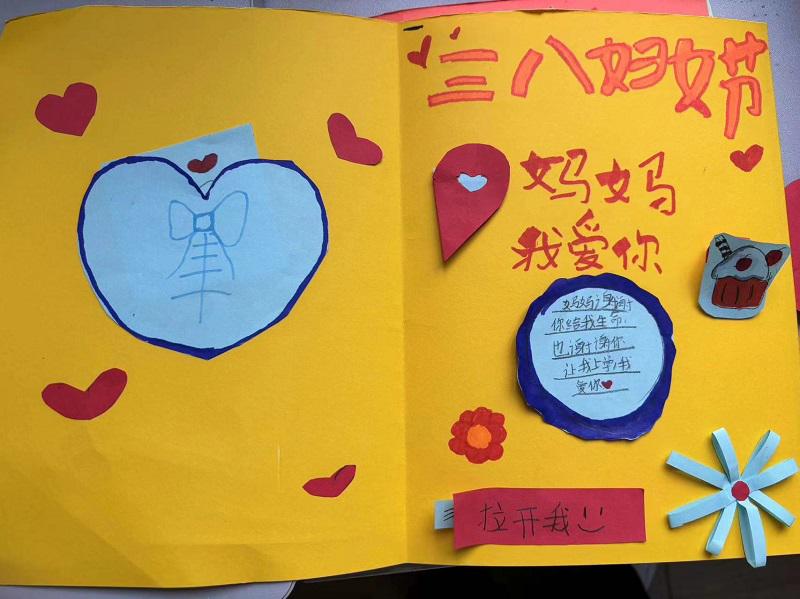 三八妇女节
妈妈
我爱你
妈妈谢谢
你给我生命.
也谢谢你
让我上学,我
爱你
拉开我